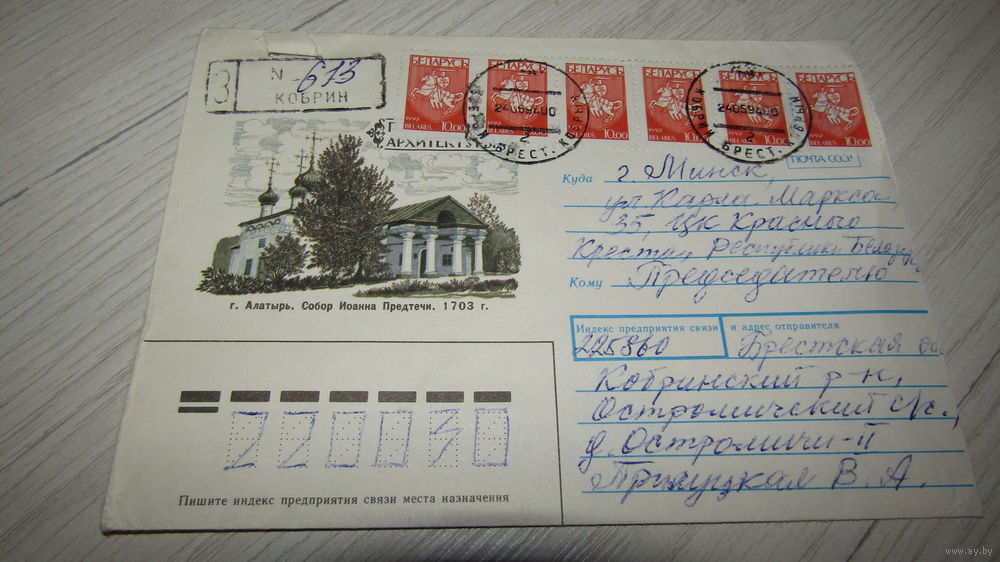 З
N - 613
КОБРИН
БЕЛАРУСЬ БЕЛАРУСЬ БЕЛАРУСЬ БЕЛАРУСЬ БЕЛАРУСЬ БЕЛАРУСЬ
1992 BELARUS 10.00
1992 10.00
1992 BELARUS 10.00
1992 BELARUS 10.00
1992 BELARUS 10.00
1992 BELARUS 10.00
2405940
2
БРЕСТ.
2405940
2
КОБРИН БРЕСТ.
ПОЧТА СССР
г. Алатырь. Собор Иоанна Предтечи. 1703 г.
Куда г. Минск,
ул. Карла Маркса,
35, ЦК Красного
Креста, Республики
Кому Председателю
Индекс предприятия связи и адрес отправителя
225860 Брестская
Кобринский р-н,
Остромичский с/с.,
д. Остромичи-II
В. А.
220030
Пишите индекс предприятия связи места назначения
www.ay.by